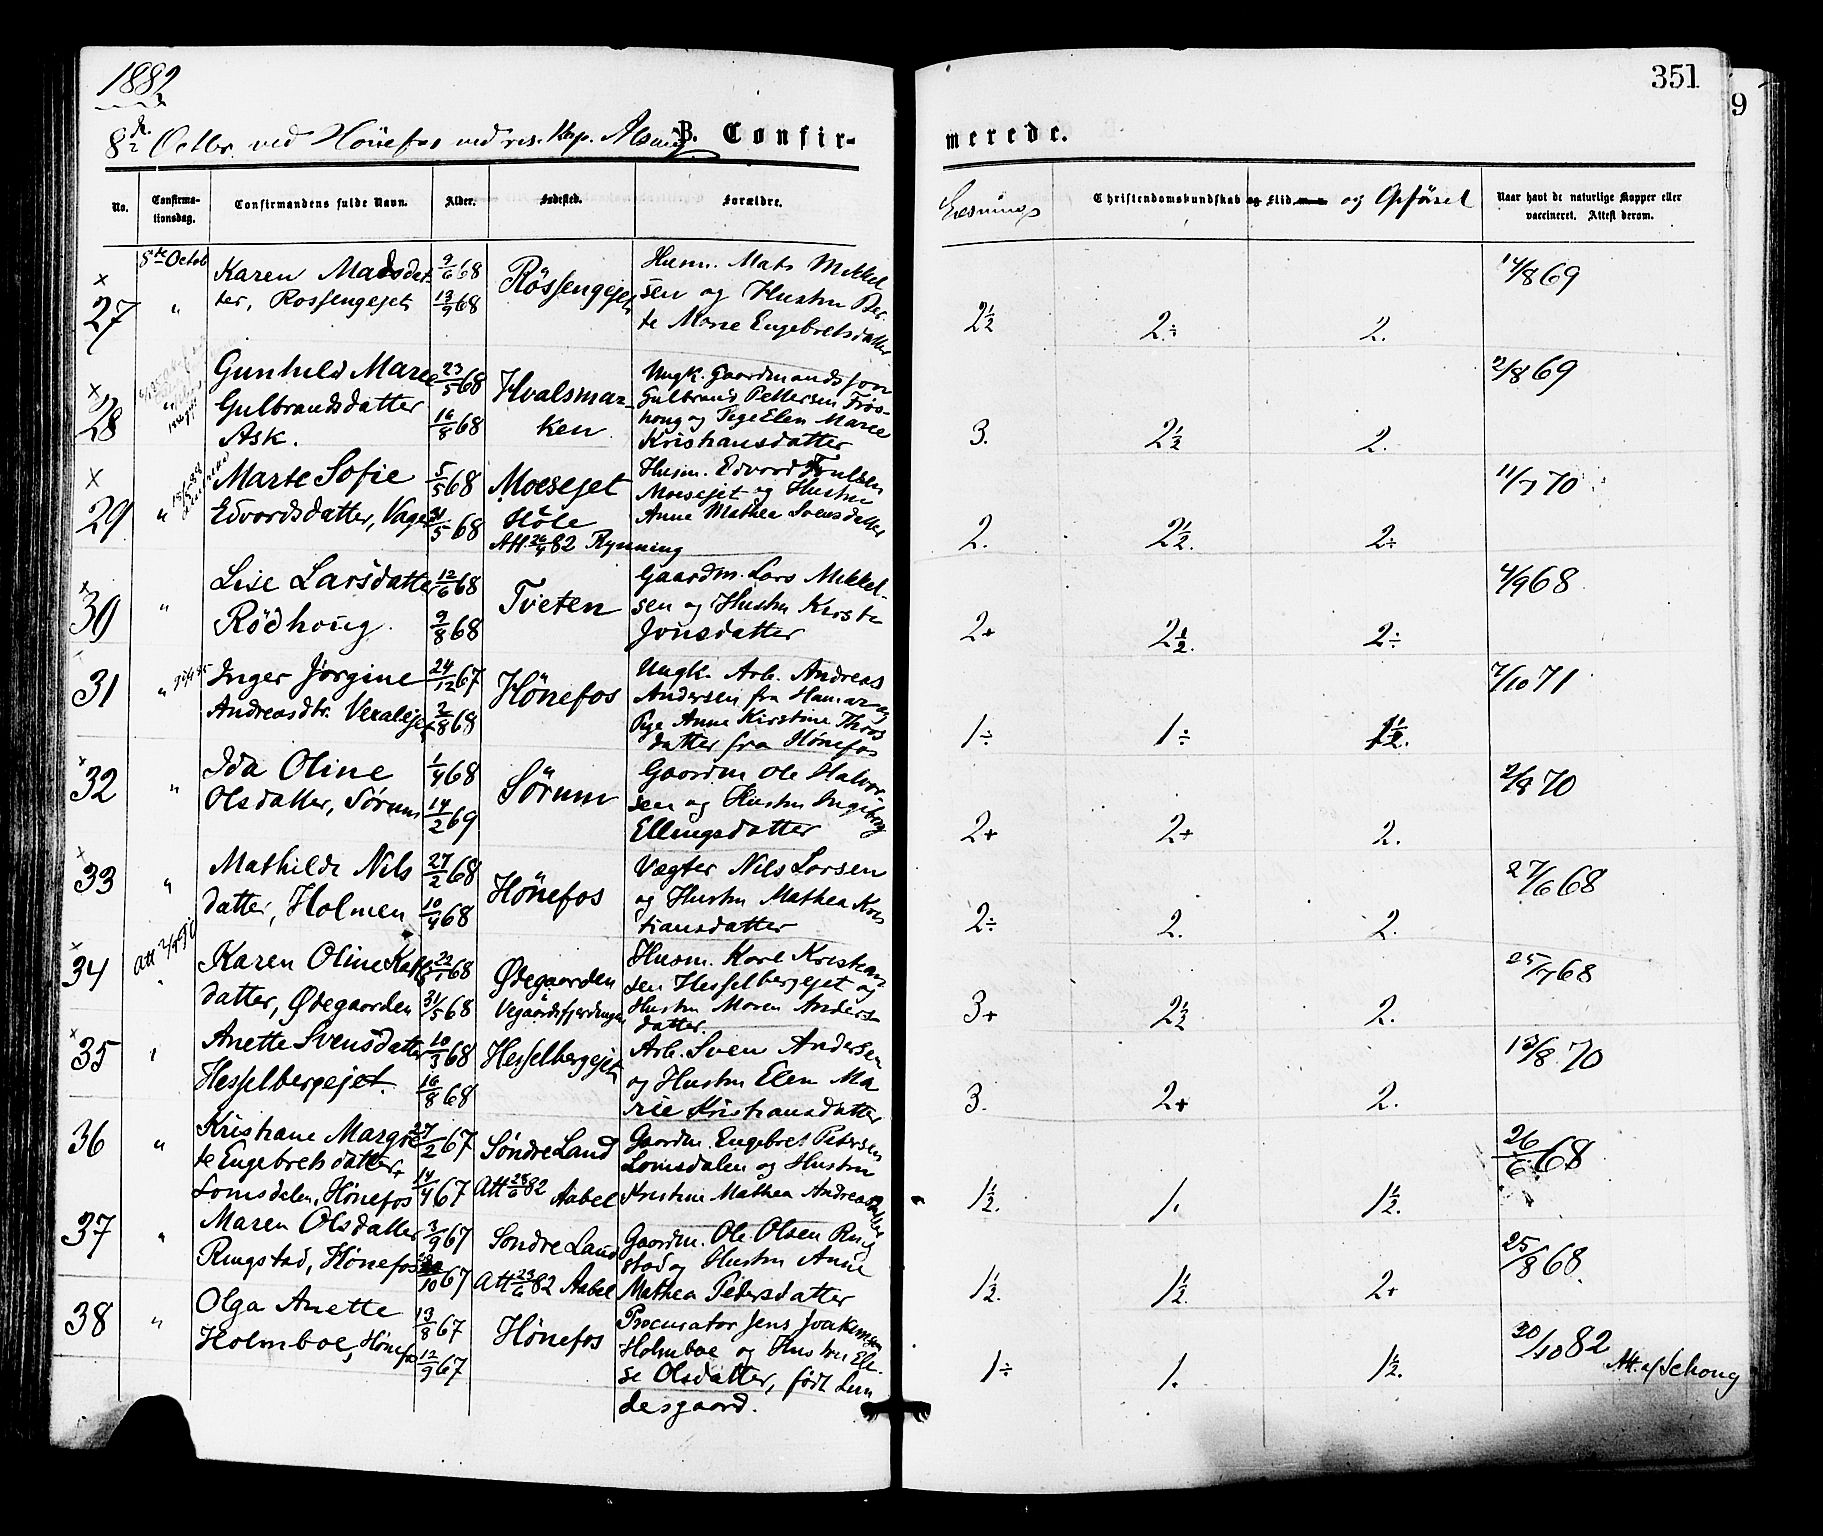 1882
351
9
8de Octbr ved Hönefos ved res. Kap. B. Confir-
merede.
No.
Confirma-
tionsdag.
Confirmandens fulde Navn.
Alder.
Fødested.
Forældre.
Læsning
Christendomskundskab og Flid og Opførsel
Naar havt de naturlige Kopper eller
vaccineret. Attest derom.
× 27
8de Octob
"
Karen Madsdat-
ter, Rossengejet
9/6 68
13/9 68
Rössengejet
Husm. Mats Mikkel
sen og Hustru Ber-
te Marie Engebretsdatter
2½
2÷
2.
14/8 69
× 28
"
Gunhild Marie
Gulbrandsdatter
Ask.
23/5 68
16/8 68
Hvalsmar-
ken
Ungk. Gaardmandssøn
Gulbrand Pettersen Frøs-
houg og Pige Elen Marie
Kristiansdatter
3.
2½
2.
2/8 69
× 29
"
Marte Sofie
Edvardsdatter, Vager
5/5 68
31/5 68
Moesejet
Höle
Att. 26/9 82 Rynning
Husm. Edvard
Moesejet og Hustru
Anne Mathea Svensdatter
2.
2½.
2÷
11/7 70
× 30
"
Lise Larsdatter
Rödhoug.
12/6 68
9/8 68
Tveten
Gaardm. Lars Mikkel-
sen og Hustru Kirsti
Jonsdatter
2+
2½.
2÷
4/9 68
31
"
Inger Jørgine
Andreasdtr. Veralejet
24/12 67
2/8 68
Hönefos
Ungk. Arb. Andreas
Andersen fra Hamar og
Pige Anne Kirstine Thros
datter fra Hönefos
1÷
1÷
1½.
7/10 71
× 32
"
Ida Oline
Olsdatter, Sørum
1/4 68
14/2 69
Sörum
Gaardm Ole Halvor-
sen og Hustru Ingeborg
Ellingsdatter
2+
2+
2.
2/8 70
× 33
"
Mathilde Nils
datter, Holmen
27/2 68
10/4 68
Hönefos
Vægter Nils Larsen
og Hustru Mathea Kris
tiansdatter
2÷
2.
2.
27/6 68
× 34
"
Karen Oline Karls
datter, Ødegaarden
22/1 68
31/5 68
Ødegaarden
Vegaardsfjerdingen
Husm. Karl Kristian
sen Hesselbergejet og
Hustru Maren Anders-
datter.
3+
2½
2.
25/7 68
× 35
"
Anette Svensdatter
Hesselbergejet.
10/3 68
16/8 68
Hesselbergejet
Arb. Sven Andersen
og Hustru Elen Ma
rie Kristiansdatter
3.
2+
2.
13/8 70
36
"
Kristiane Margre
te Engebretsdatter
Lomsdalen, Hönefos
27/2 67
14/4 67
Söndre Land
Att 28/6 82 Aabel
Gaardm. Engebret Petersen
Lomsdalen og Hustru
Kristine Mathea Andreasdatter
1½.
1.
1½.
26/6 68
37
"
Maren Olsdatter
Ringstad, Hönefos
3/9 67
20/10 67
Söndre Land
Att 23/6 82 Aabel
Gaardm. Ole Olsen Ring
stad og Hustru Anne
Mathea Pedersdatter
1½.
1½.
2+
25/8 68.
38
"
Olga Anette
Holmboe, Hönefos
13/8 67
12/9 67
Hönefos
Procurator Jens Joakimsen
Holmboe og Hustru Eli-
se Olsdatter, født Lun
desgaard.
1÷
1.
1½.
20/10 82
Att. af Schong